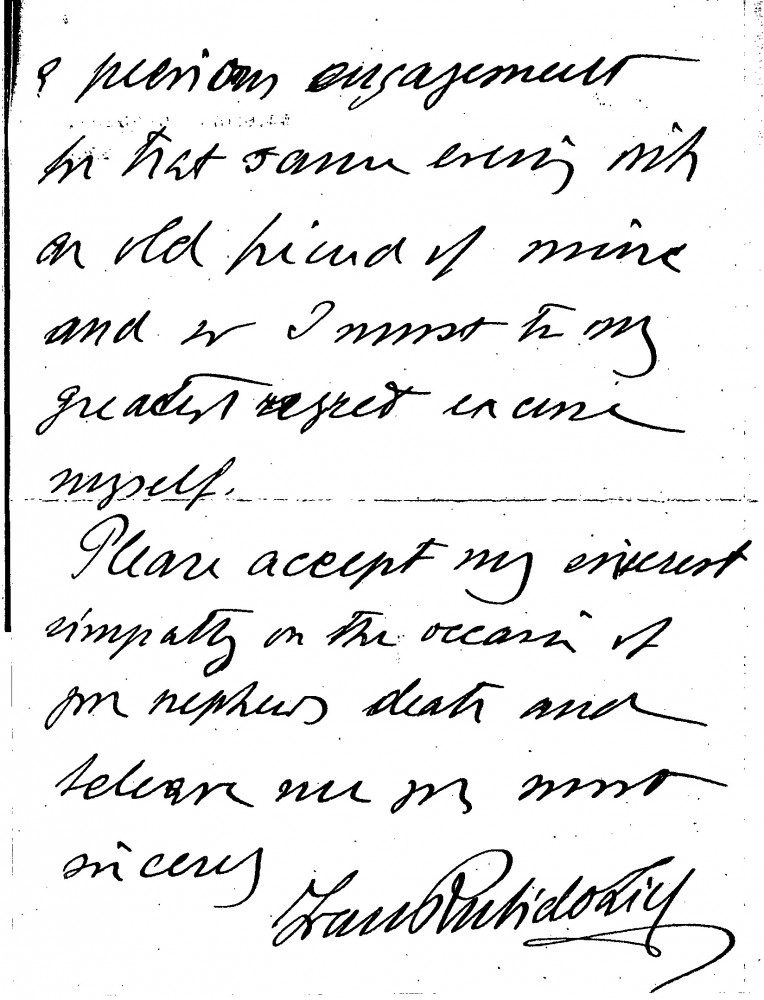 a previous engagement
for that same evening with
an old friend of mine
and so I must to my
greatest regret excuse
myself.
Please accept my sincerest
simpatty on the occasion of
your nephews death and
beleave me yrs most
sincerely